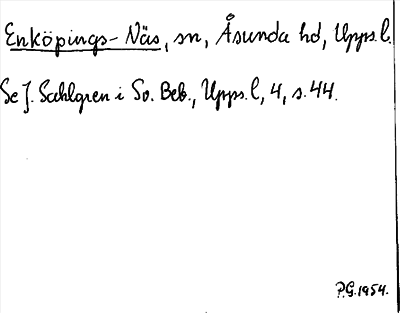 Enköpings-Näs, sn, Åsunda hd, Upps.l.
Se J. Sahlgren i Sv. Beb., Upps.l, 4, s.44.
P.G.1954.